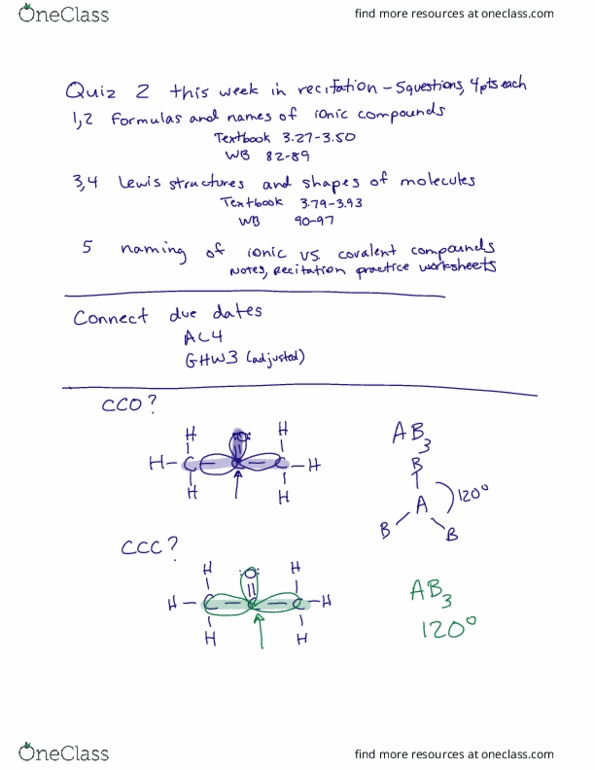 OneClass
find more resources at oneclass.com
Quiz 2 this week in recitation - 5 questions, 4 pts each
1,2 Formulas and names of ionic compounds
Textbook 3.27-3.50
WB 82-89
3,4 Lewis structures and shapes of molecules
Textbook 3.79-3.93
WB 90-97
5 naming of ionic vs. covalent compounds
Notes, Recitation practice worksheets
Connect due dates
AL4
GHW3 (adjusted)
CCO?
H H
:O:
||
H-C-C-C-H
H H
AB3
B
A 120°
B B
CCC?
H H
:O:
||
H-C-C-C-H
H H
AB3
120°
OneClass
find more resources at oneclass.com